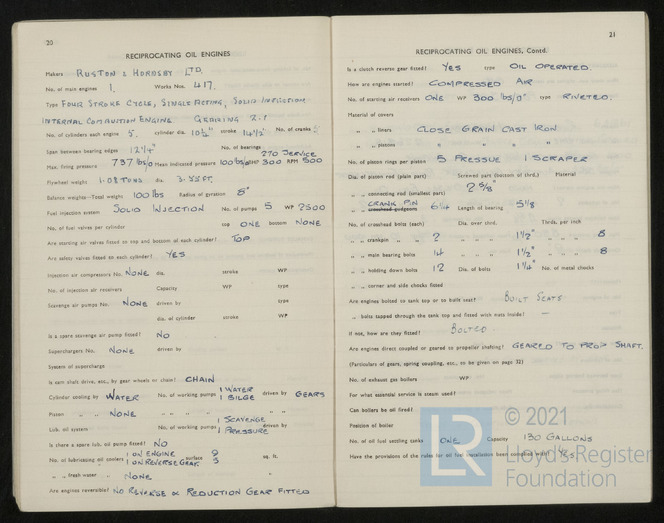 20
RECIPROCATING OIL ENGINES
Makers RUSTON & HORNSBY LTD.
No. of main engines 1. Works Nos. 417.
Type FOUR STROKE CYCLE, SINGLE ACTING, SOLID INJECTION
INTERNAL COMBUSTION ENGINE GEARING 2:1
No. of cylinders each engine 5. cylinder dia. 10½" stroke 14½" No. of cranks 5
Span between bearing edges No. of bearings
270 SERVICE
Max. firing pressure 737 lbs/□" Mean indicated pressure 100 lbs/□" BHP 300 RPM 500
Flywheel weight 1.08 TONS dia. 3.55FT.
Balance weights—Total weight 100 lbs Radius of gyration 8"
Fuel injection system SOLID INJECTION No. of pumps 5 WP 2500
No. of fuel valves per cylinder top ONE bottom NONE
Are starting air valves fitted to top and bottom of each cylinder? TOP
Are safety valves fitted on each cylinder? YES
Injection air compressors No. NONE dia. stroke WP
No. of injection air receivers Capacity WP type
Scavenge air pumps No. NONE driven by type
dia. of cylinder stroke WP
Is a spare scavenge air pump fitted? NO
Superchargers No. NONE driven by
System of supercharge
Is cam shaft drive, etc., by gear wheels or chain? CHAIN
Cylinder cooling by WATER No. of working pumps 1 WATER 1 BILGE driven by GEARS
Piston " " NONE " " " " "
Lub. oil system No. of working pumps 1 SCAVENGE 1 PRESSURE driven by
Is there a spare lub. oil pump fitted? NO
No. of lubricating oil coolers 1 ON ENGINE 1 ON REVERSE GEAR surface sq. ft.
" " fresh water " NONE " "
Are engines reversible? NO REVERSE & REDUCTION GEAR FITTED
21
RECIPROCATING OIL ENGINES, Contd.
Is a clutch reverse gear fitted? YES type OIL OPERATED.
How are engines started? COMPRESSED AIR
No. of starting air receivers ONE WP 300 lbs/□" type RIVETED.
Material of covers
" " liners CLOSE GRAIN CAST IRON
" " pistons " " " "
No. of piston rings per piston 5 PRESSUE 1 SCRAPER
Dia. of piston rod (plain part) Screwed part (bottom of thrd.) Material
" " connecting rod (smallest part) 2 5/8"
CRANK PIN
" " crosshead gudgeons 6¼ Length of bearing 5 1/8
No. of crosshead bolts (each) Dia. over thrd. Thrds. per inch
" " crankpin " " 2 " " " 1½" " " " 8
" " main bearing bolts 14 " " " 1½" " " " 8
" " holding down bolts 12 Dia. of bolts 1¼" No. of metal chocks
" " corner and side chocks fitted
Are engines bolted to tank top or to built seat? BUILT SEATS
" bolts tapped through the tank top and fitted with nuts inside? —
If not, how are they fitted? BOLTED
Are engines direct coupled or geared to propeller shafting? GEARED TO PROP SHAFT.
(Particulars of gears, spring coupling, etc., to be given on page 32)
No. of exhaust gas boilers WP
For what essential service is steam used?
Can boilers be oil fired?
Position of boiler
No. of oil fuel settling tanks ONE Capacity 130 GALLONS
Have the provisions of the rules for oil fuel installation been complied with? YES
LR
© 2021
Lloyd's Register
Foundation